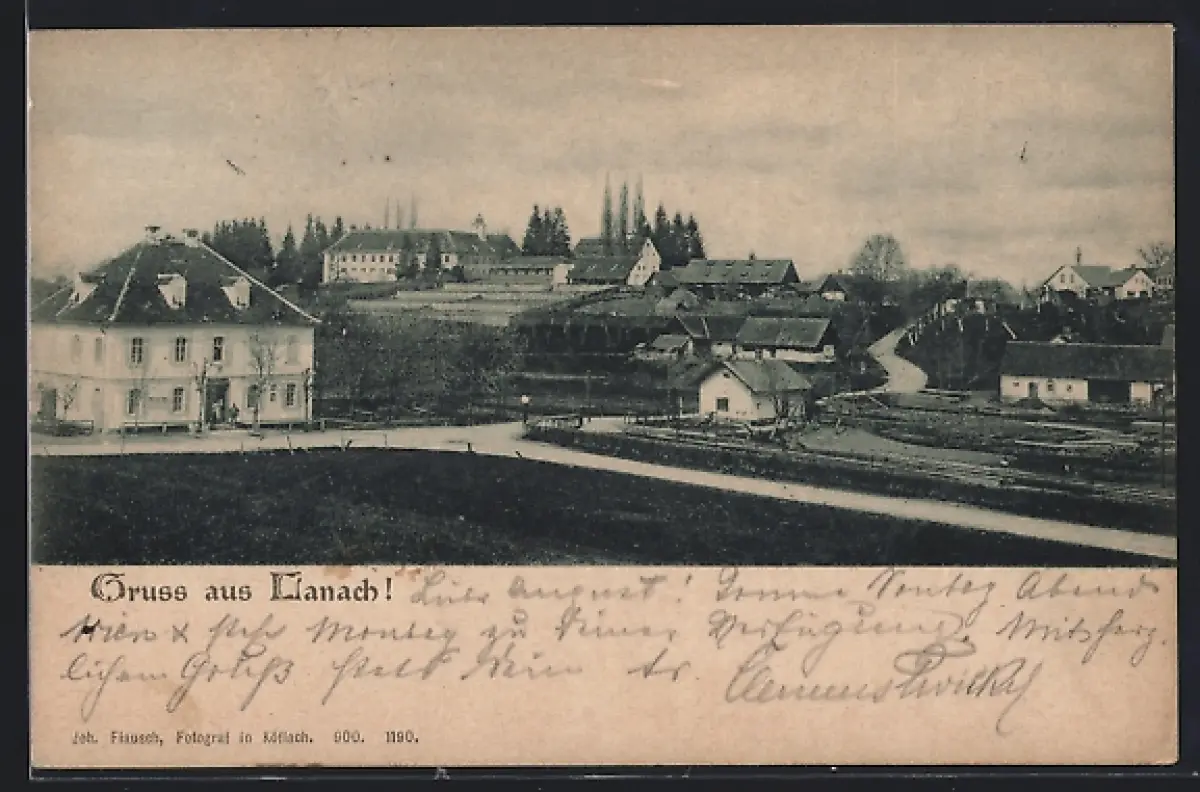 Gruss aus Lanach! Lieber August! Komme Sonntag Abend
Wien & stehe Montag zu Deiner Verfügung. Mit herz-
lichem Gruß stets Dein
Joh. Flausch, Fotograf in Köflach. 900. 1190.